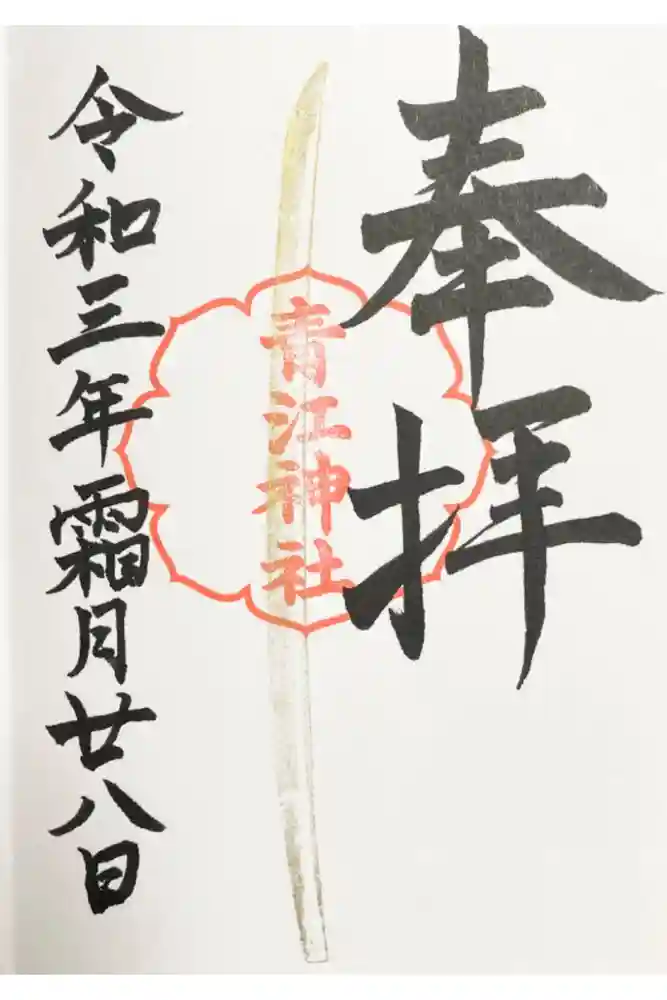 奉拝
青江神社
令和三年霜月廿八日